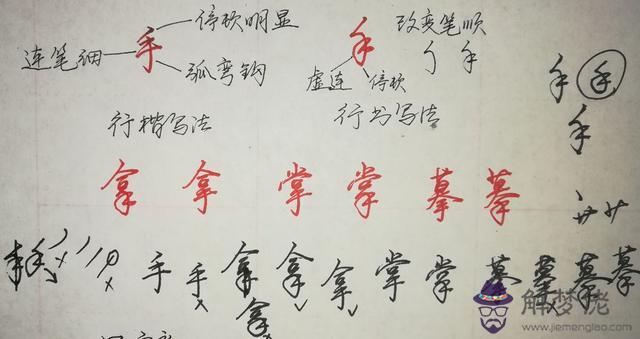 停顿明显 改变笔顺
连笔细 手 手
弧弯钩 虚连 停顿 手
行楷写法 行书写法 手
拿 拿 掌 掌 摹 摹
手 手 拿 拿 拿 掌 掌 摹 摹 摹 摹
拿
解梦佬
www.jiemenglao.com